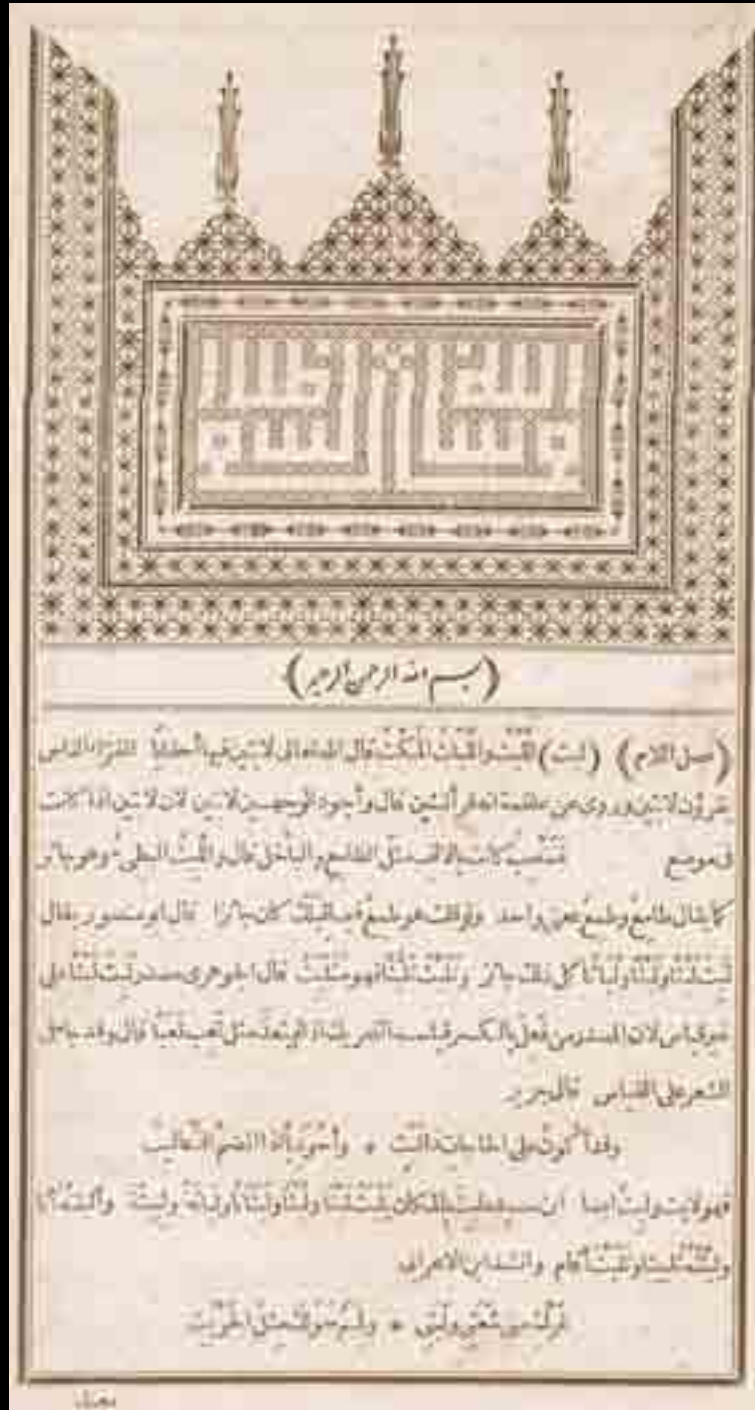 (بسم الله الرحمن الرحيم)
(فصل اللام) (لبث) اللبث واللباث المكث قال الله تعالى لابثين فيها أحقابا الفراء الناس
يقرؤن لابثين وروى عن علقمة انه قرأ لبثين قال وأجود الوجهين لابثين لان لابثين اذا كانت
فى موضع فتنصب كانت بالالف مثل الطامع والباخل قال واللبث البطىء وهو جائز
كما يقال طامع وطمع بمعنى واحد ولو قلت هو طمع فيما قبلك كان جائزا قال ابو منصور يقال
لبث لبثا ولبثا ولباثا كل ذلك جائز وتلبث تلبثا فهو متلبث قال الجوهرى مصدر لبث لبثا على
غير قياس لان المصدر من فعل بالكسر قياسه التحريك اذا لم يتعد مثل تعب تعبا قال وقد جاء فى
الشعر على القياس قال جرير
وقد أكون على الحاجات ذا لبث * وأحوذيا اذا انضم الذعاليب
فهو لابث ولبث أيضا ابن سيده لبث بالمكان يلبث لبثا ولبثا ولبثانا ولباثة ولبيثة وألبثته أنا
ولبثته تلبيثا وتلبث أقام وأنشد ابن الاعرابى
غرك منى شعثى ولبثى * ولمم حولك مثل الحربث
معناه